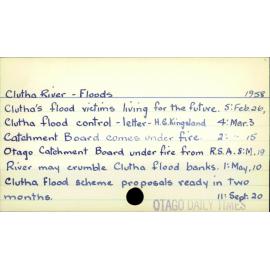 Clutha River - Floods 1958
Clutha's flood victims living for the future. 5: Feb. 26,
Clutha flood control - letter - H.G. Kingsland 4: Mar. 3
Catchment Board comes under fire. 2: - 15
Otago Catchment Board under fire from R.S.A. 8: M. 19
River may crumble Clutha flood banks. 1: May, 10
Clutha flood scheme proposals ready in two
months. 11: Sept. 20
OTAGO DAILY TIMES